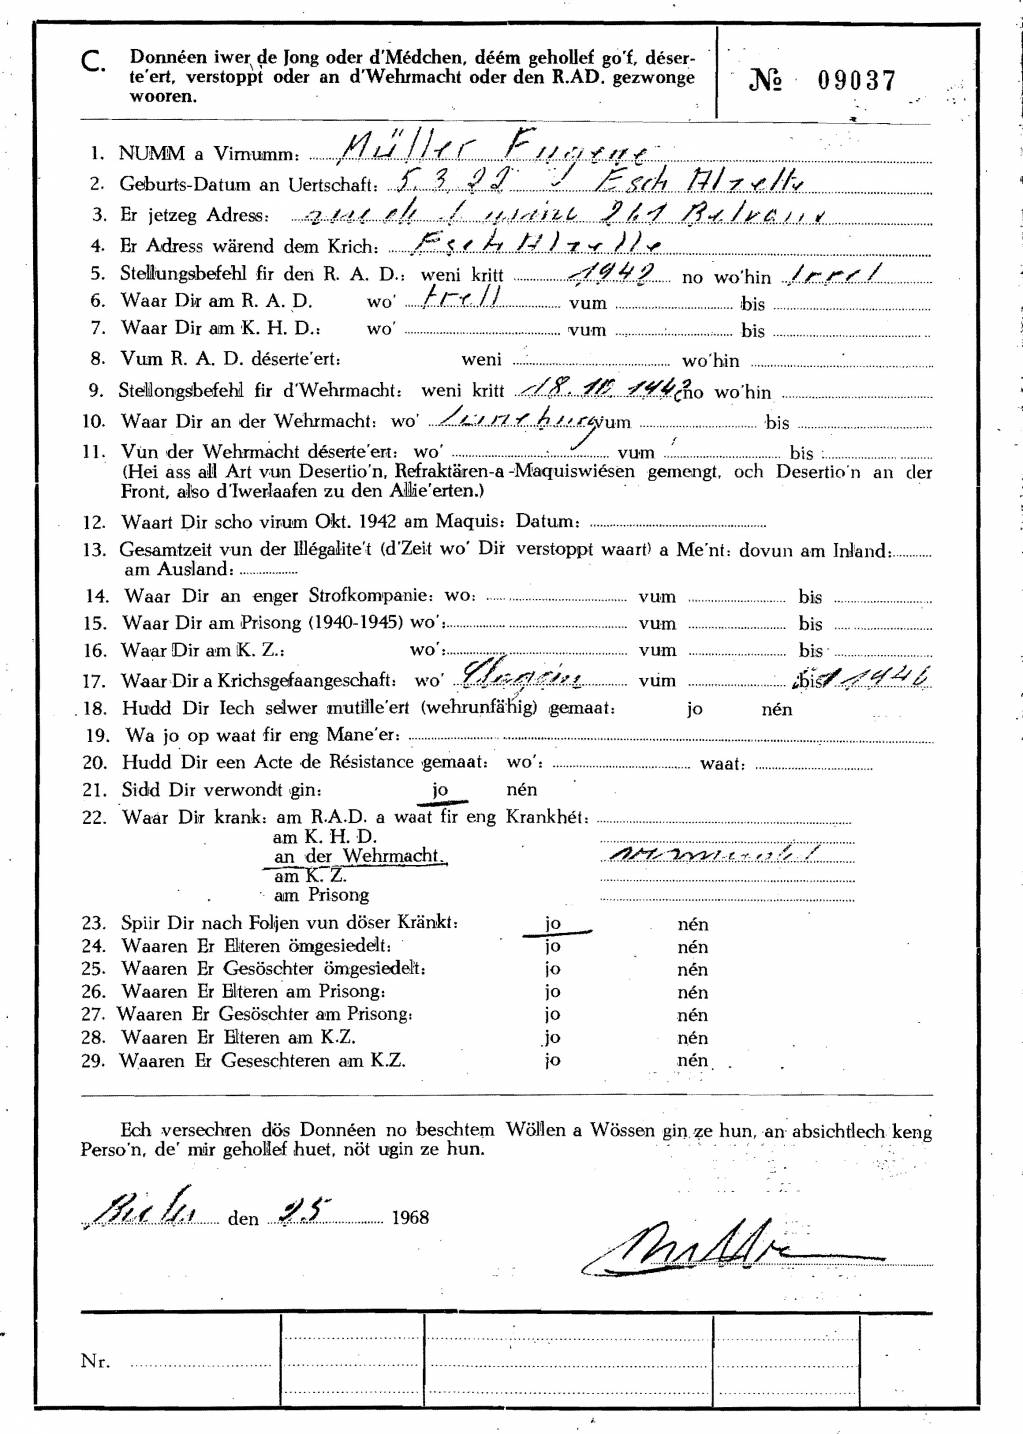 C. Donnéen iwer de Jong oder d'Médchen, déém gehollef go'f, déser-
te'ert, verstoppt oder an d'Wehrmacht oder den R.AD. gezwonge
wooren.
№ 09037
1. NUMM a Virnumm: Müller Eugene
2. Geburts-Datum an Uertschaft: 5.3.22 Esch Alzette
3. Er jetzeg Adress: 261 Belvaux
4. Er Adress wärend dem Krich: Esch Alzette
5. Stellungsbefehl fir den R. A. D.: weni kritt 1942 no wo'hin Irrel
6. Waar Dir am R. A. D. wo' Irell vum bis
7. Waar Dir am K. H. D.: wo' vum bis
8. Vum R. A. D. déserte'ert: weni wo'hin
9. Stellongsbefehl fir d'Wehrmacht: weni kritt 18. 10. 1942 no wo'hin
10. Waar Dir an der Wehrmacht: wo' Lüneburg vum bis
11. Vun der Wehrmacht déserte'ert: wo' vum bis
(Hei ass all Art vun Desertio'n, Refraktären-a-Maquiswiésen gemengt, och Desertio'n an der
Front, also d'Iwerlaafen zu den Allie'erten.)
12. Waart Dir scho virum Okt. 1942 am Maquis: Datum:
13. Gesamtzeit vun der Illégalite't (d'Zeit wo' Dir verstoppt waart) a Me'nt: dovun am Inland:
am Ausland:
14. Waar Dir an enger Strofkompanie: wo: vum bis
15. Waar Dir am Prisong (1940-1945) wo': vum bis
16. Waar Dir am K. Z.: wo': vum bis
17. Waar Dir a Krichsgefaangeschaft: wo' vum bis 1946
18. Hudd Dir Iech selwer mutille'ert (wehrunfähig) gemaat: jo nén
19. Wa jo op waat fir eng Mane'er:
20. Hudd Dir een Acte de Résistance gemaat: wo': waat:
21. Sidd Dir verwondt gin: jo nén
22. Waar Dir krank: am R.A.D. a waat fir eng Krankhét:
am K. H. D.
an der Wehrmacht.
am K. Z.
am Prisong
23. Spiir Dir nach Foljen vun döser Kränkt: jo nén
24. Waaren Er Elteren ömgesiedelt: jo nén
25. Waaren Er Gesöschter ömgesiedelt: jo nén
26. Waaren Er Elteren am Prisong: jo nén
27. Waaren Er Gesöschter am Prisong: jo nén
28. Waaren Er Elteren am K.Z. jo nén
29. Waaren Er Geseschteren am K.Z. jo nén
Ech versechren dös Donnéen no beschtem Wöllen a Wössen gin ze hun, an absichtlech keng
Perso'n, de' mir gehollef huet, nöt ugin ze hun.
den 25 1968
Nr.